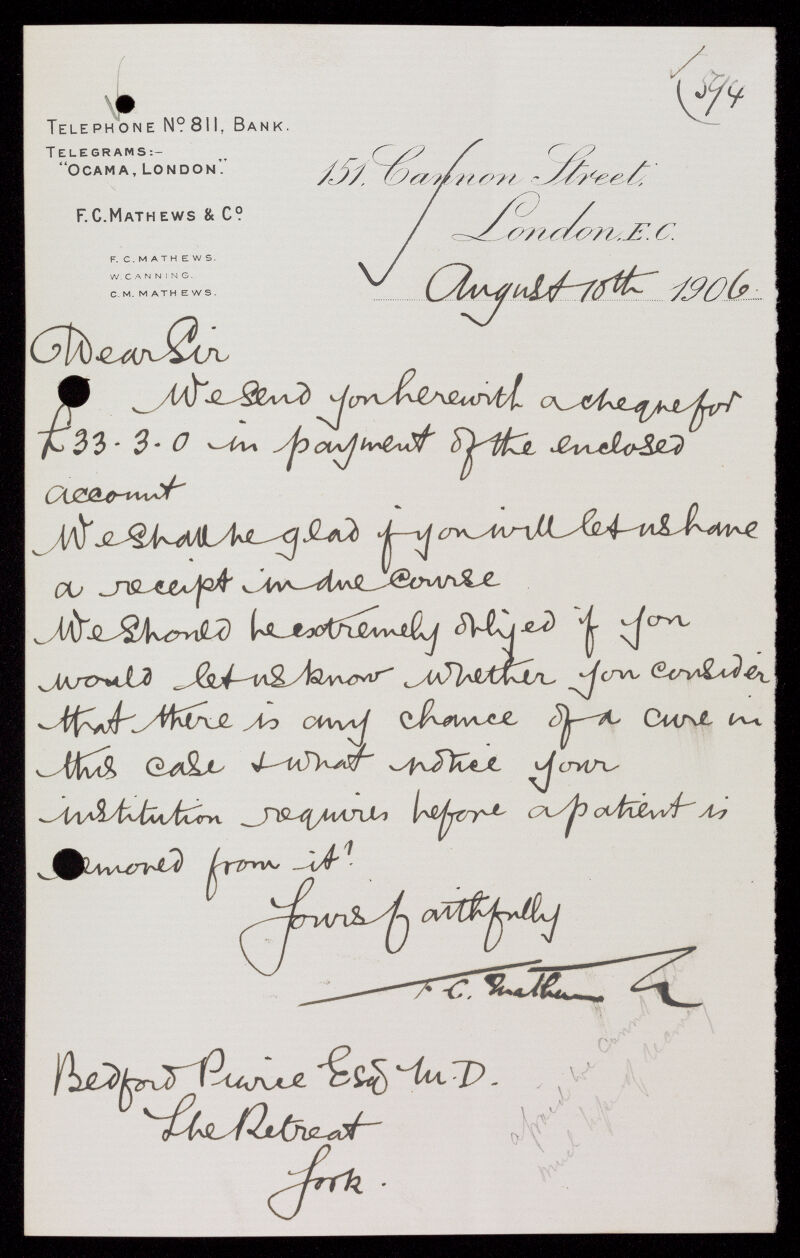 594
TELEPHONE Nº 811, BANK.
TELEGRAMS:-
"OCAMA, LONDON."
F.C. MATHEWS & Cº
F. C. MATHEWS.
W. CANNING.
C. M. MATHEWS.
151, Cannon Street,
London, E.C.
August 10th 1906.
Dear Sir
We send you herewith a cheque for
£33-3-0 in payment of the enclosed
account
We shall be glad if you will let us have
a receipt in due course
We should be extremely obliged if you
would let us know whether you consider
that there is any chance of a cure in
this case & what notice your
institution requires before a patient is
removed from it?
Yours faithfully
F. C. Mathews
Bedford Pierce Esq M.D.
The Retreat
York.
afraid we cannot
much hope of